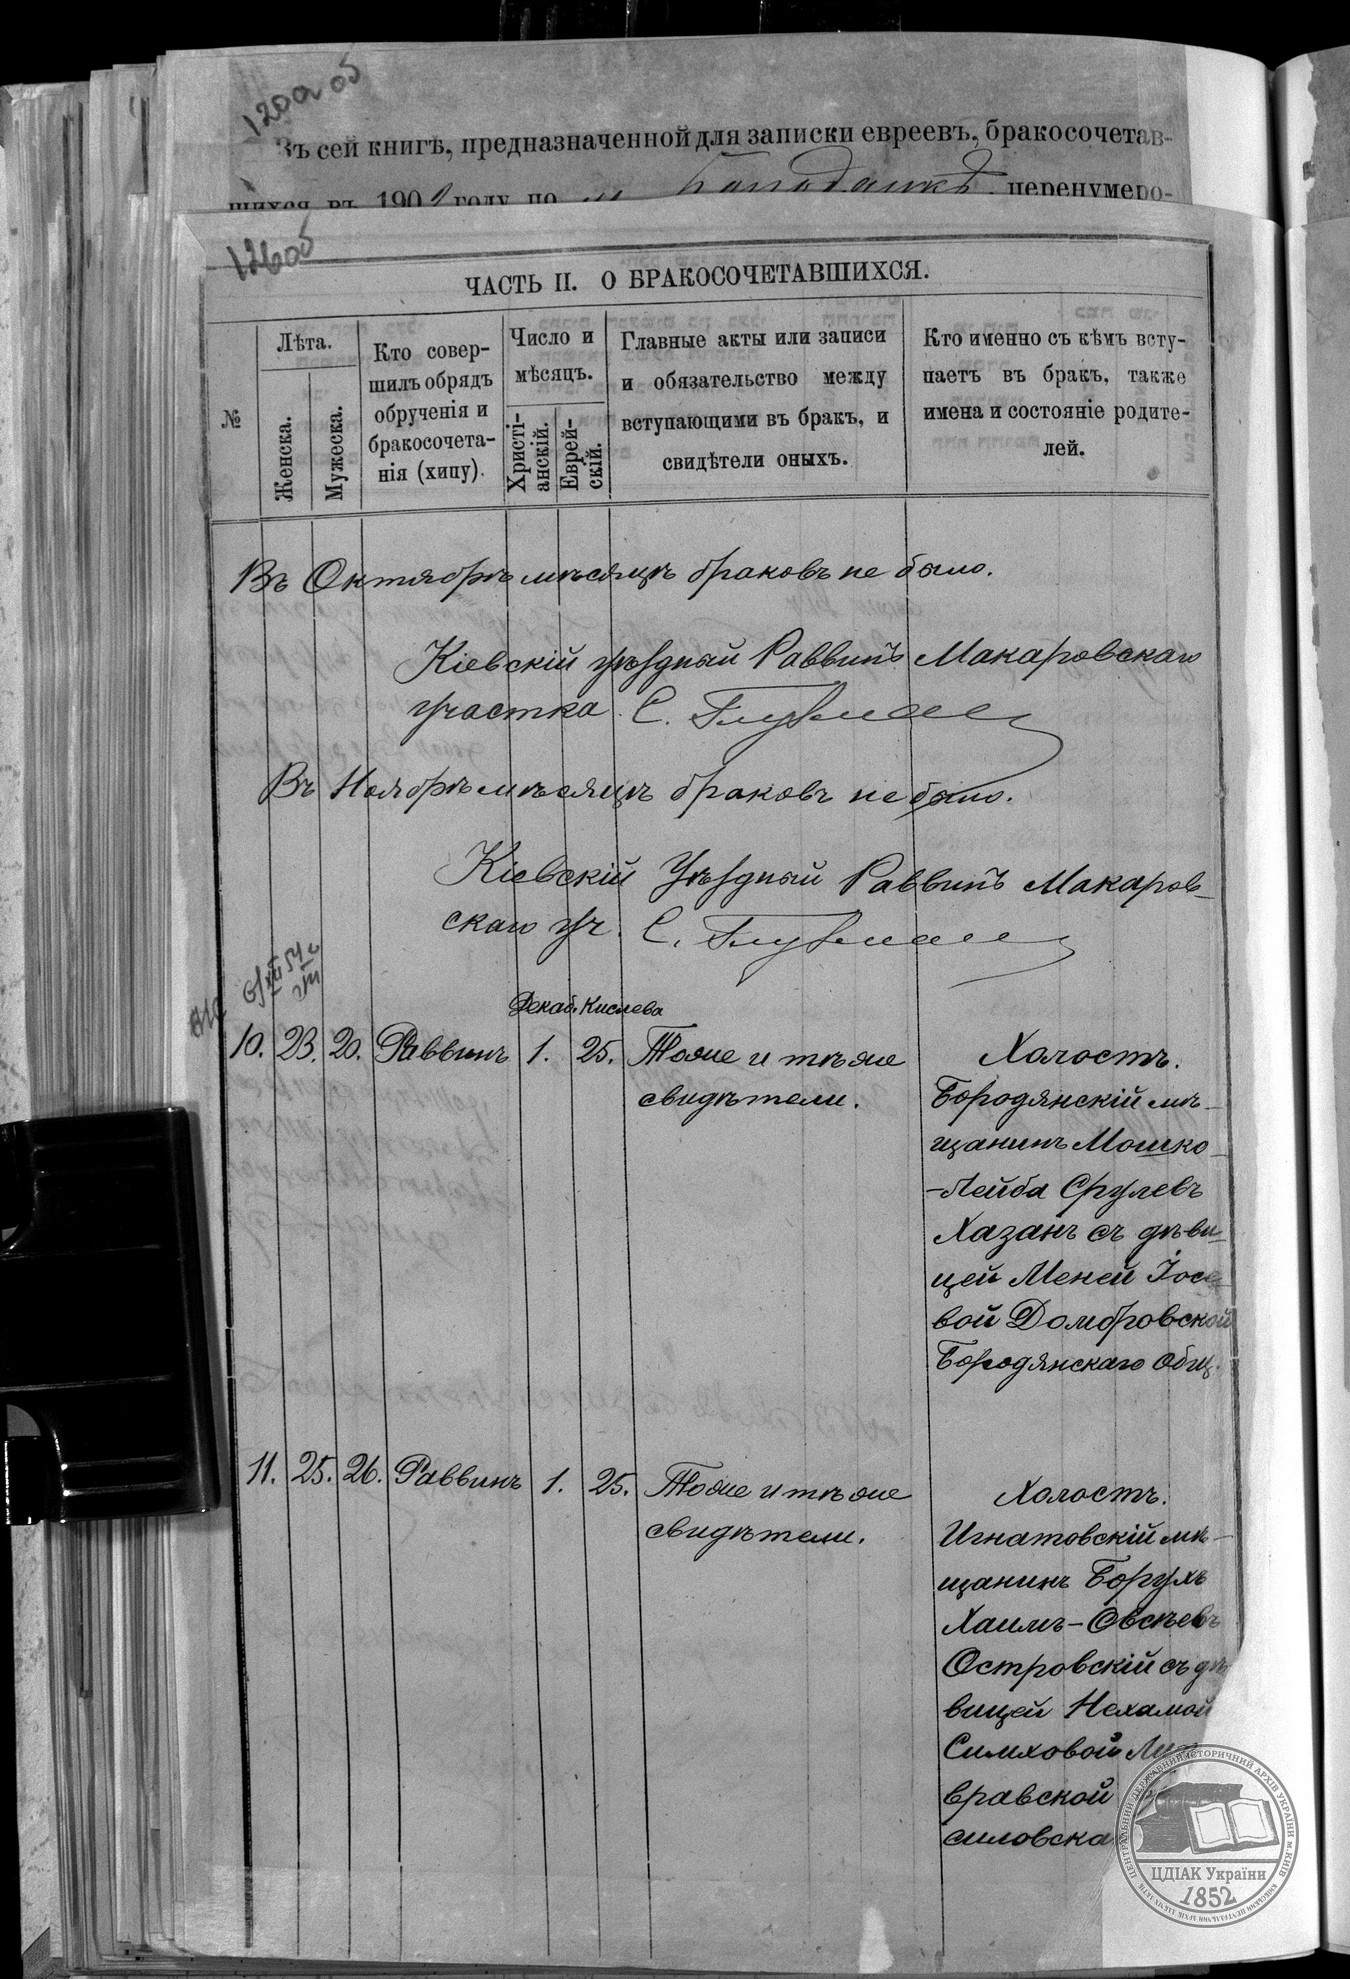 120 об
Въ сей книгѣ, предназначенной для записки евреевъ, бракосочетав-
шихся въ 190 году по перенумеро-
126 об
ЧАСТЬ II. О БРАКОСОЧЕТАВШИХСЯ.
№
Лѣта.
Женска.
Мужеска.
Кто совер-
шилъ обрядъ
обрученія и
бракосочета-
нія (хипу).
Число и
мѣсяцъ.
Христі-
анскій.
Еврей-
скій.
Главные акты или записи
и обязательство между
вступающими въ бракъ, и
свидѣтели оныхъ.
Кто именно съ кѣмъ всту-
паетъ въ бракъ, также
имена и состояніе родите-
лей.
Въ Октябрѣ мѣсяцѣ браковъ не было.
Кіевскій уѣздный Раввинъ Макаровскаго
участка С.
Въ Ноябрѣ мѣсяцѣ браковъ не было.
Кіевскій Уѣздный Раввинъ Макаров-
скаго уч. С.
Декаб. Кислева
10. 23. 20. Раввинъ 1. 25. Тоже и тѣже
свидѣтели.
Холостъ.
Бородянскій мѣ-
щанинъ Мошко-
-Лейба Срулевъ
Хазанъ съ дѣви-
цей Меней Іосе-
вой Домбровской
Бородянскаго Общ.
11. 25. 26. Раввинъ 1. 25. Тоже и тѣже
свидѣтели.
Холостъ.
Игнатовскій мѣ-
щанинъ Борухъ
Хаимъ-Овсѣевъ
Островскій съ дѣ-
вицей Нехамой
Симховой
вравской
силовска
ЦЕНТРАЛЬНИЙ ДЕРЖАВНИЙ ІСТОРИЧНИЙ АРХІВ УКРАЇНИ м. КИЇВ
ЦДІАК України
1852